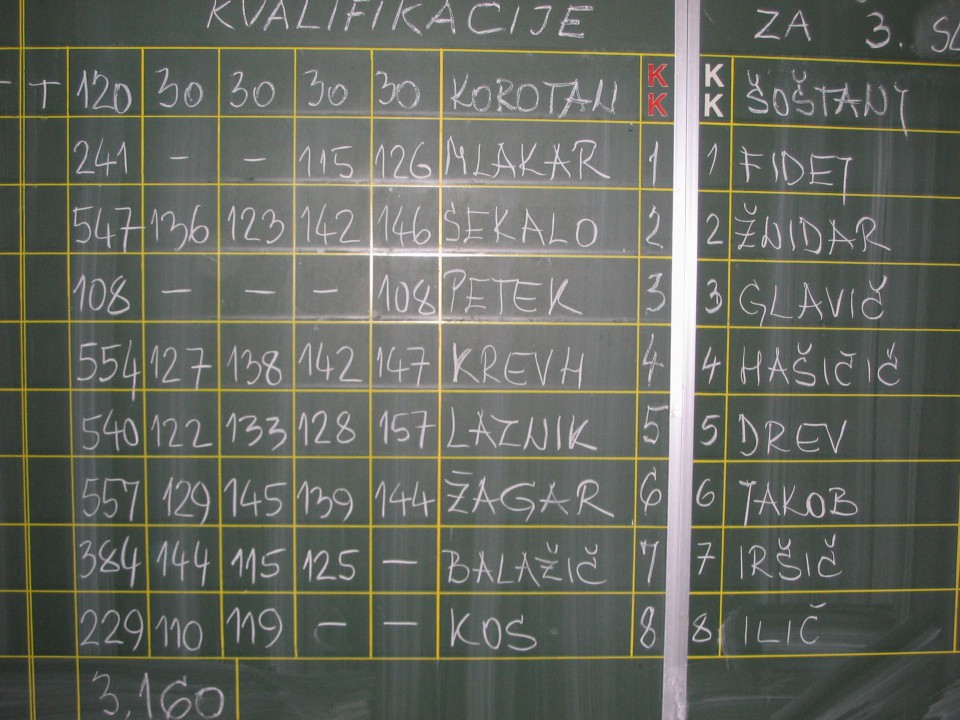 KVALIFIKACIJE ZA 3.
T 120 30 30 30 30 KOROTAN KK KK ŠOŠTANJ
241 – – 115 126 MLAKAR 1 1 FIDEJ
547 136 123 142 146 ŠEKALO 2 2 ŽNIDAR
108 – – – 108 PETEK 3 3 GLAVIČ
554 127 138 142 147 KREVH 4 4 HAŠIČIČ
540 122 133 128 157 LAZNIK 5 5 DREV
557 129 145 139 144 ŽAGAR 6 6 JAKOB
384 144 115 125 – BALAŽIČ 7 7 IRŠIČ
229 110 119 – – KOS 8 8 ILIČ
3,160